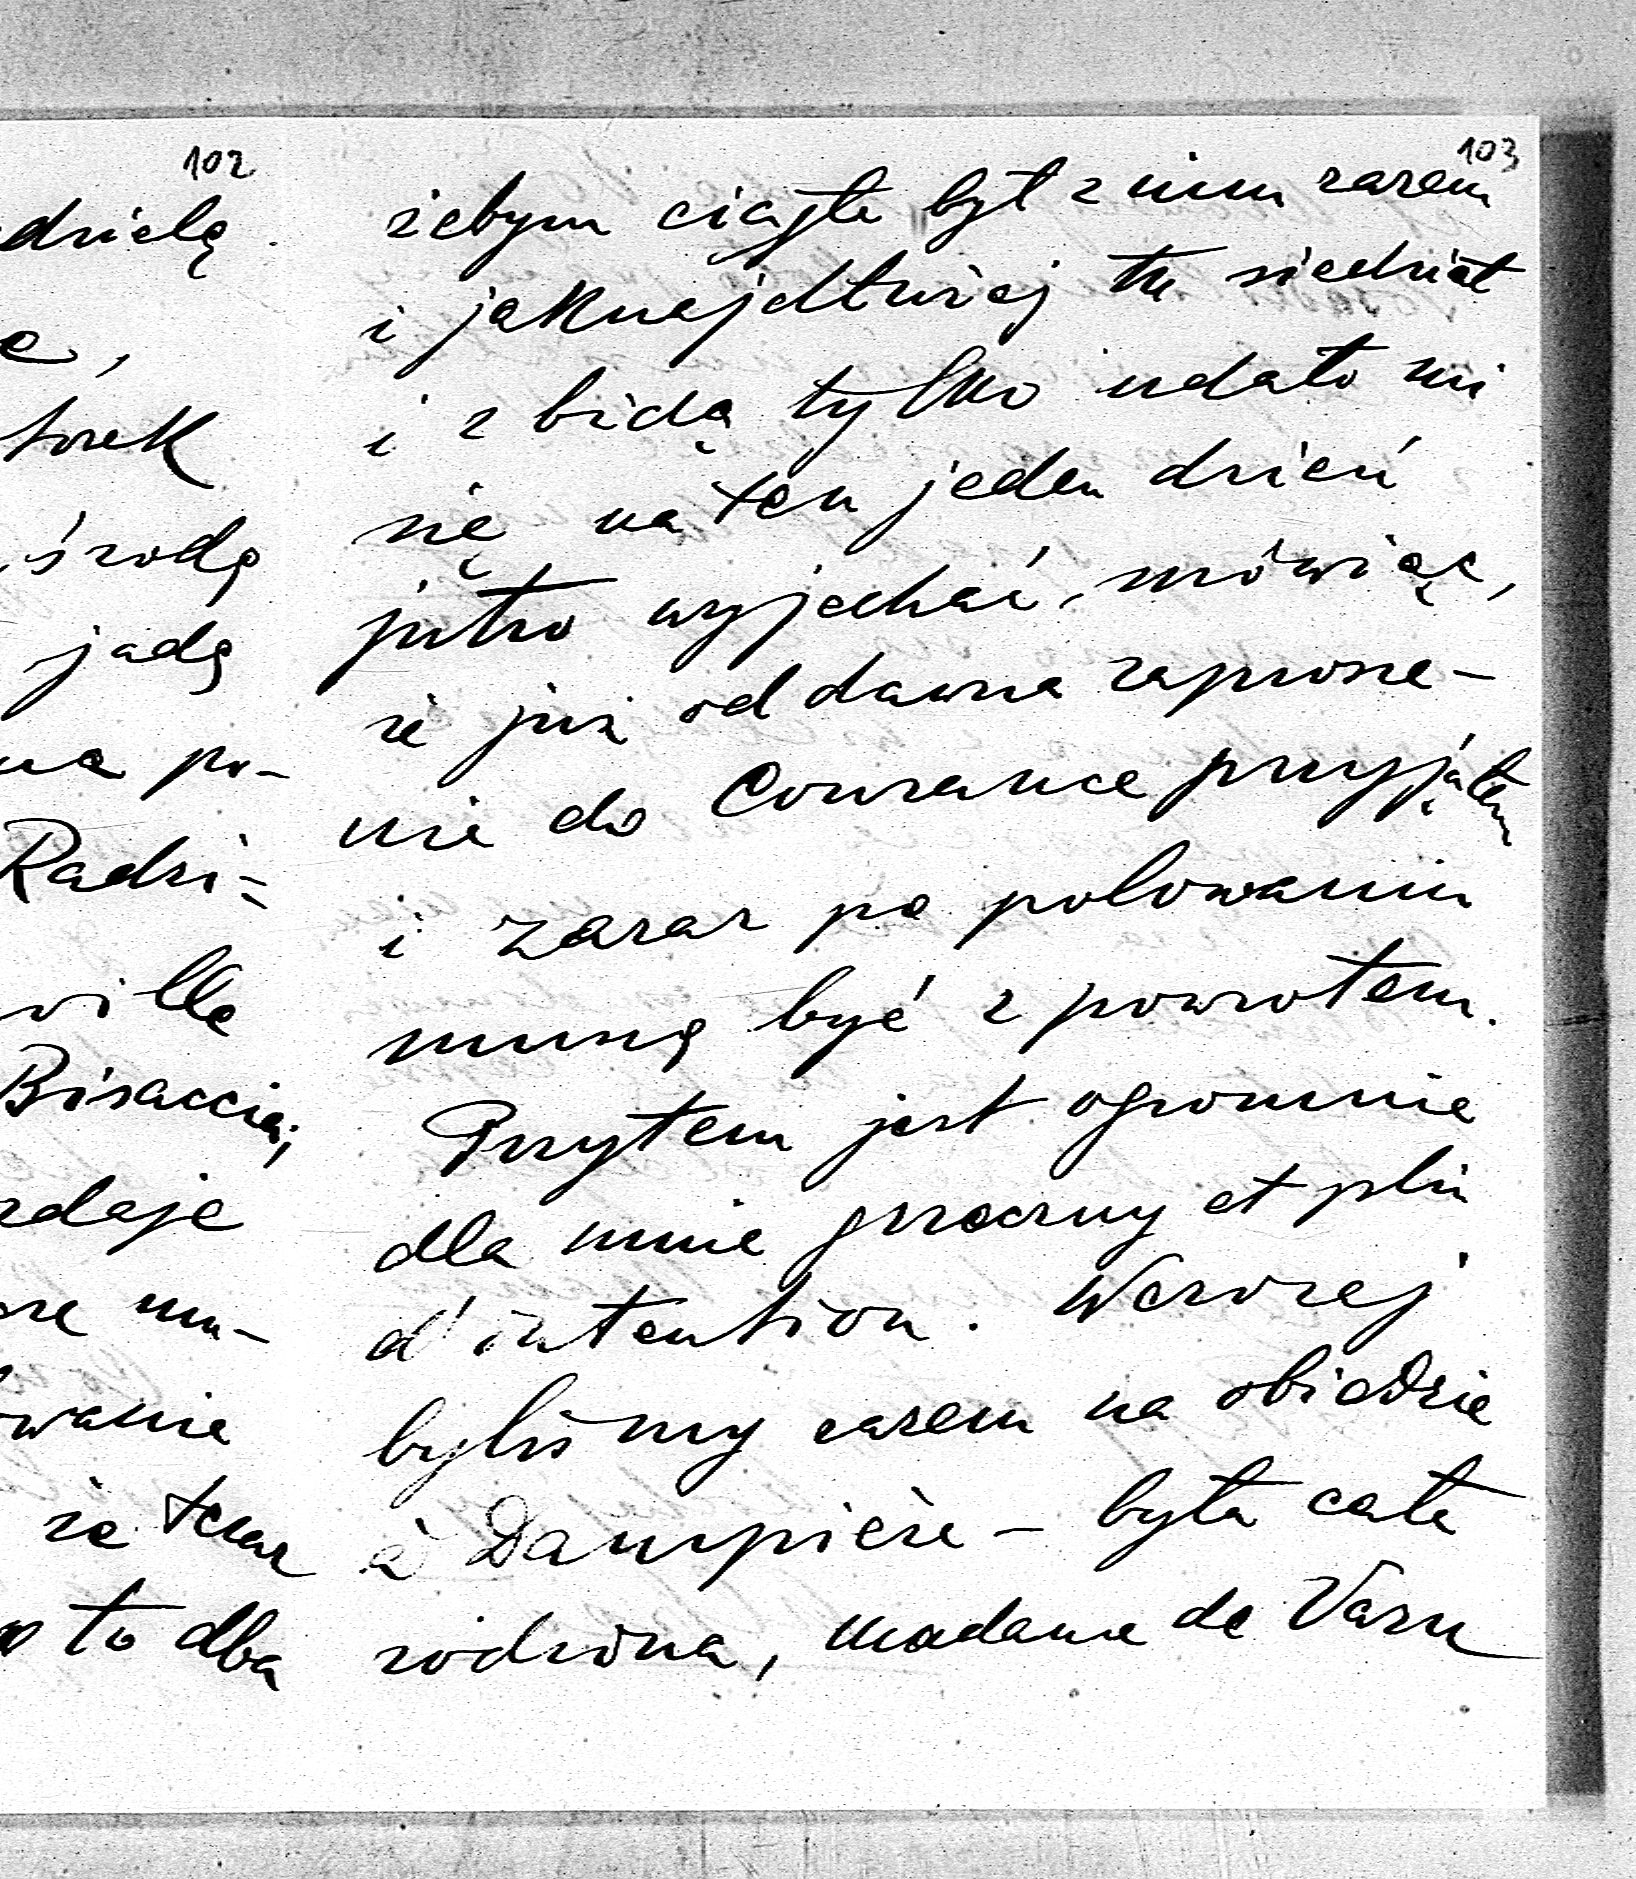 102
dzielę
e,
torek
środę
jadę
na po-
Radzi-
ville
Bisaccia;
zdaje
że mu-
wanie
że teraz
to dba
103
żebym ciągle był z nim razem
i jaknajdłużej tu siedział
i z bidą tylko udało mi
się na ten jeden dzień
jutro wyjechać, mówiąc,
że już od dawna zaprosze-
nie do Courance przyjąłem
i zaraz po polowaniu
muszę być z powrotem.
Przytem jest ogromnie
dla mnie grzeczny et plin
d'intention. Wczoraj
byliśmy razem na obiedzie
à Dampière – była cała
rodzina, madame de